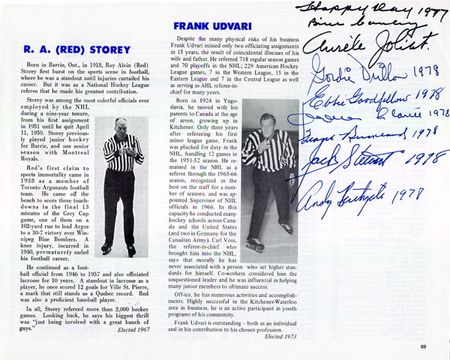 R. A. (RED) STOREY
Born in Barrie, Ont., in 1918, Roy Alvin (Red)
Storey first burst on the sports scene in football,
where he was a standout until injuries curtailed his
career. But it was as a National Hockey League
referee that he made his greatest contribution.
Storey was among the most colorful officials ever
employed by the NHL
during a nine-year tenure,
from his first assignment
in 1951 until he quit April
11, 1959. Storey previous-
ly played junior hockey
for Barrie, and one senior
season with Montreal
Royals.
Red's first claim to
sports immortality came in
1938 as a member of
Toronto Argonauts football
team. He came off the
bench to score three touch-
downs in the final 13
minutes of the Grey Cup
game, one of them on a
102-yard run to lead Argos
to a 30-7 victory over Win-
nipeg Blue Bombers. A
knee injury, incurred in
1940, prematurely ended
his football career.
He continued as a foot-
ball official from 1946 to 1957 and also officiated
lacrosse for 10 years. A standout in lacrosse as a
player, he once scored 12 goals for Ville St. Pierre,
a mark that still stands as a Quebec record. Red
was also a proficient baseball player.
In all, Storey refereed more than 2,000 hockey
games. Looking back, he says his biggest thrill
was "just being involved with a great bunch of
guys."
Elected 1967
FRANK UDVARI
Despite the many physical risks of his business
Frank Udvari missed only two officiating assignments
in 15 years, the result of coincidental illnesses of his
wife and father. He refereed 718 regular season games
and 70 playoffs in the NHL; 229 American Hockey
League games, 7 in the Western League, 15 in the
Eastern League and 7 in the Central League as well
as serving as AHL referee-in-
chief for many years.
Born in 1924 in Yugo-
slavia, he moved with his
parents to Canada at the age
of seven, growing up in
Kitchener. Only three years
after refereeing his first
minor league game, Frank
was placed for duty in the
NHL, handling 12 games in
the 1951-52 season. He re-
mained in the NHL as a
referee through the 1965-66
season, recognized as the
best on the staff for a num-
ber of seasons, and was ap-
pointed Supervisor of NHL
officials in 1966. In this
capacity he conducted many
hockey schools across Can-
ada and the United States
(and two in Germany for the
Canadian Army). Carl Voss,
the referee-in-chief who
brought him into the NHL,
says that morally he has
never associated with a person who set higher stan-
dards for himself. Co-workers considered him the
unquestioned leader and he was influential in helping
many junior members to ultimate success.
Off-ice, he has numerous activities and accomplish-
ments. Highly successful in the Kitchener-Waterloo
area in business, he is an active participant in youth
programs of his community.
Frank Udvari is outstanding — both as an individual
and in his contribution to his chosen profession.
Elected 1973
Happy Day 1977
Aurèle Joliat
Gordie Drillon 1978
Ebbie Goodfellow 1978
1978
1978
Jack Stewart 1978
Andy Bathgate 1978
89